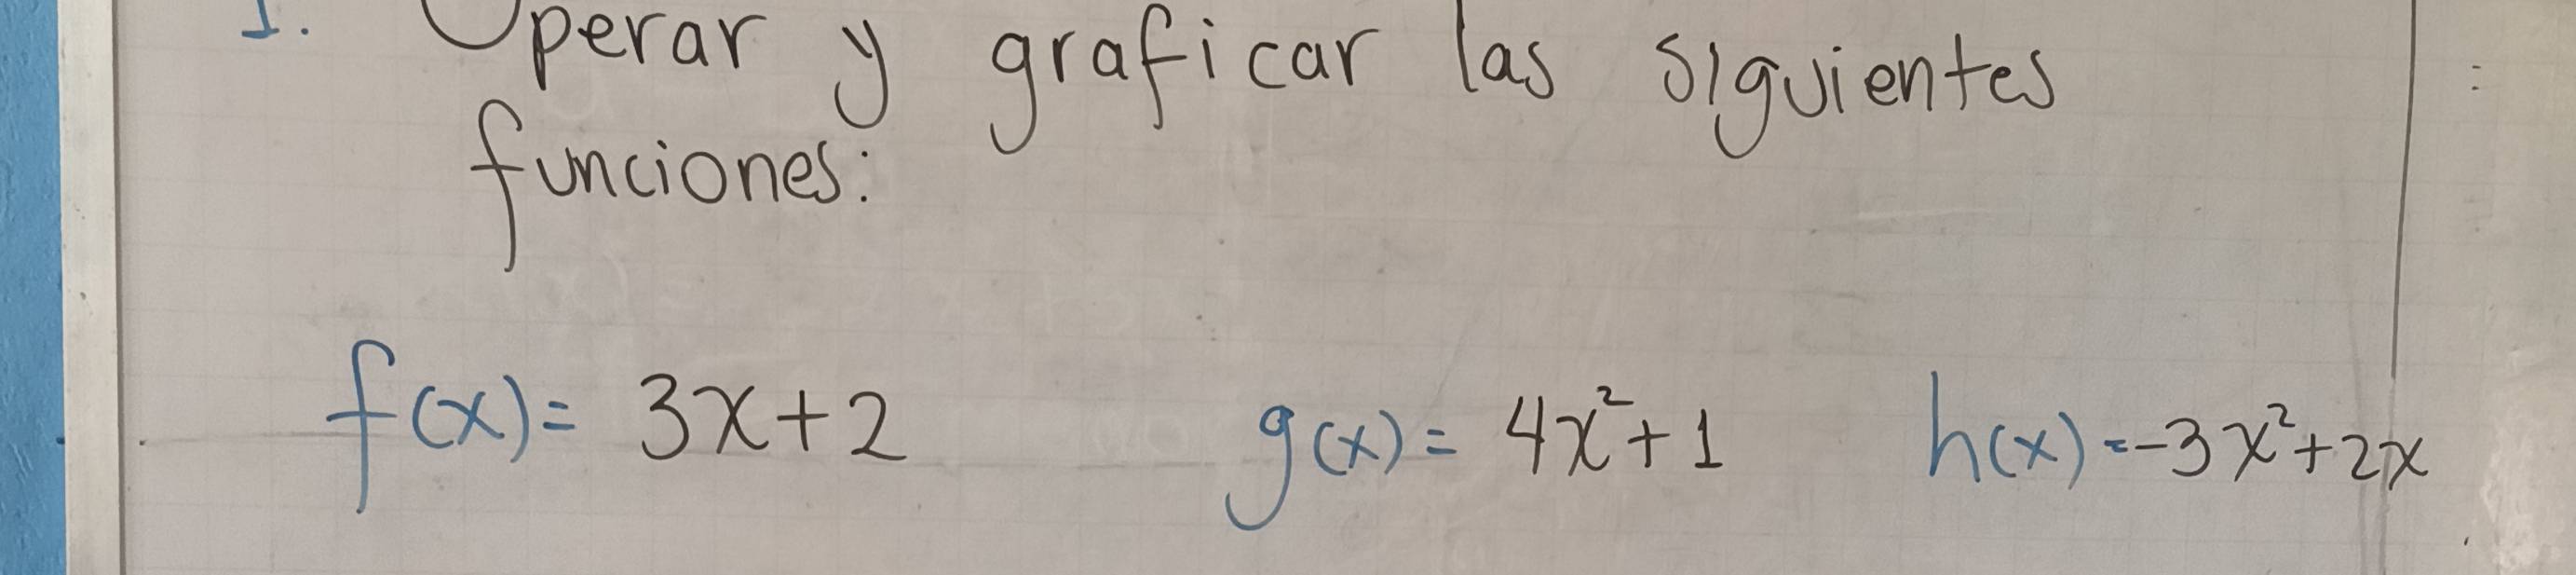 1. Operar y graficar las siguientes
funciones:
f(x)= 3x+2 g(x)= 4x²+1 h(x)=-3x²+2x